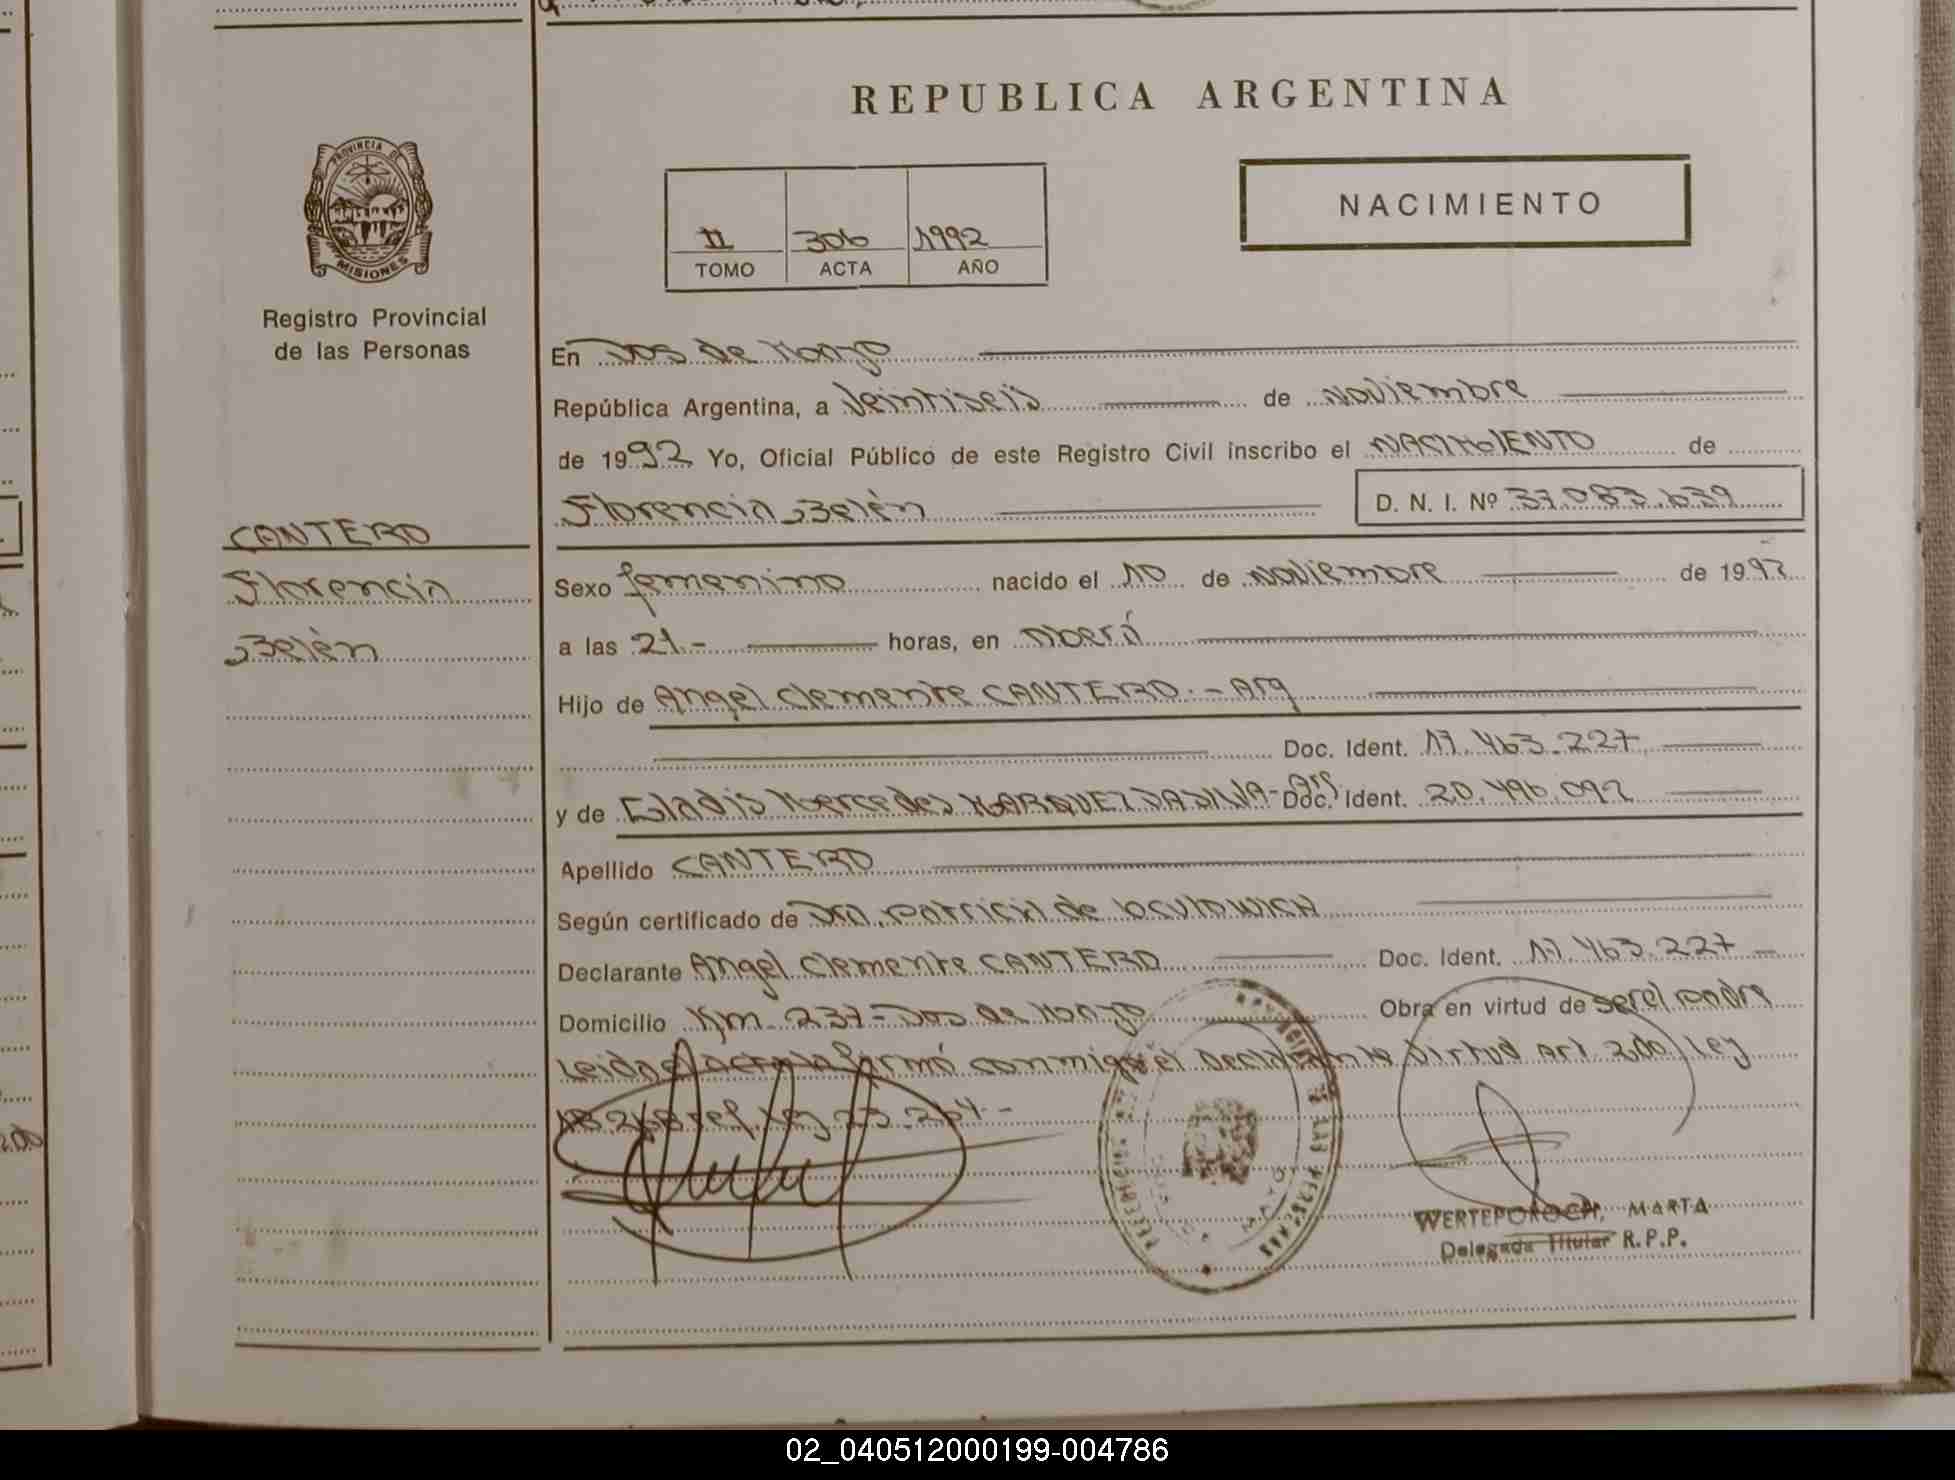 REPUBLICA ARGENTINA
PROVINCIA DE
MISIONES
Registro Provincial
de las Personas
NACIMIENTO
II 306 1992
TOMO ACTA AÑO
En Dos de Mayo
República Argentina, a Veintiseis de Noviembre
de 1992 Yo, Oficial Público de este Registro Civil inscribo el NACIMIENTO de
Florencia Belén D. N. I. Nº 37.083.639
CANTERO
Florencia
Belén
Sexo femenino nacido el 10 de Noviembre de 1992
a las 21.- horas, en Oberá
Hijo de Angel Clemente CANTERO.- Arg
Doc. Ident. 17.463.227
y de Gladis Mercedes MARQUEZ DA SILVA - Arg Doc. Ident. 20.496.092
Apellido CANTERO
Según certificado de Dra. Patricia de
Declarante Angel Clemente CANTERO Doc. Ident. 17.463.227
Domicilio Km 237 - Dos de Mayo Obra en virtud de ser el Padre
Leida el acta la firmó conmigo el Declarante Virtud Art Ley
18.248 ref. Ley 23.264.-
WERTEPOROCH, MARTA
Delegada Titular R.P.P.
02_040512000199-004786